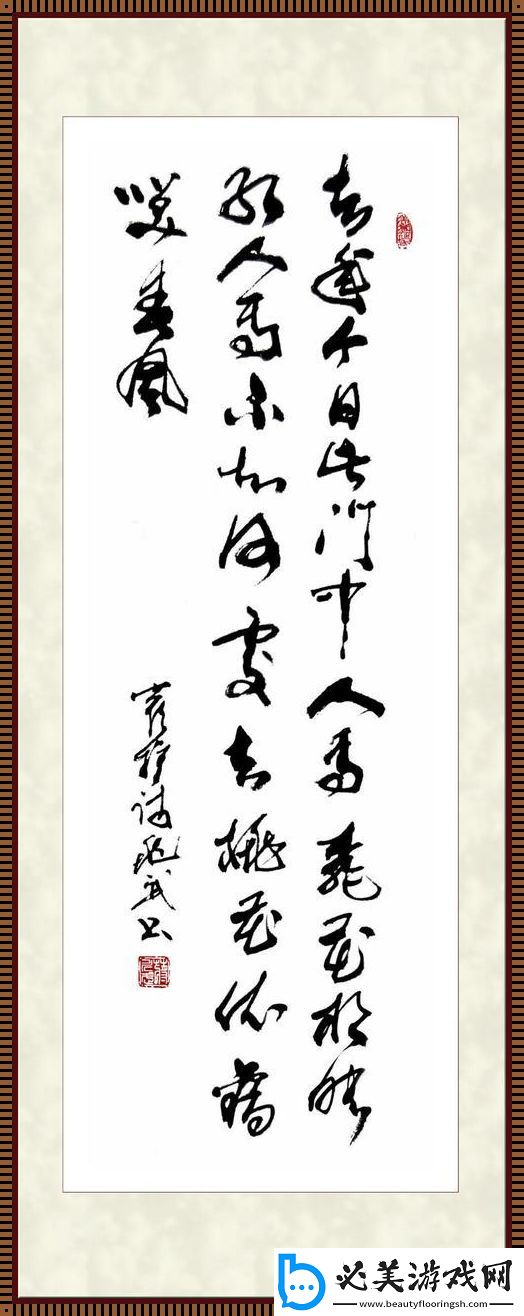 去年今日此門中人面桃花相映
紅人面不知何處去桃花依舊
笑春風
崔護詩武书
必美游戏网
www.beautyflooringsh.com